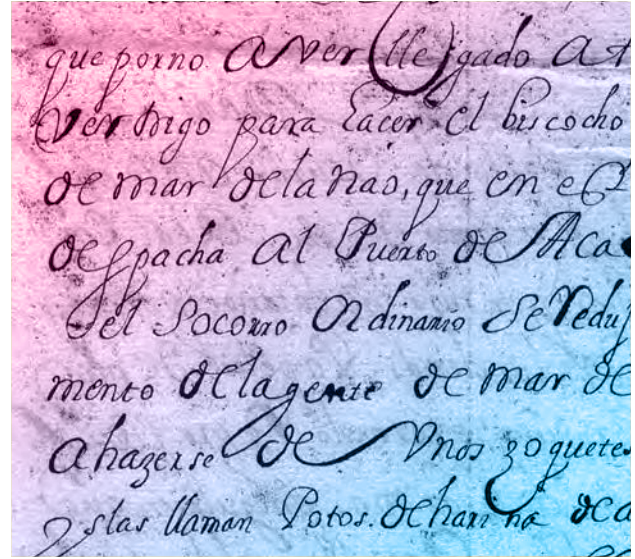 que porno aver llegado a t
ver trigo para hacer el biscocho
de mar de la nao, que en es
despacha al Puerto de Aca
del socorro ordinario se redu
mento de la gente de mar de
a hazerse de unos zoquetes
yslas llaman Potos. de harina de a